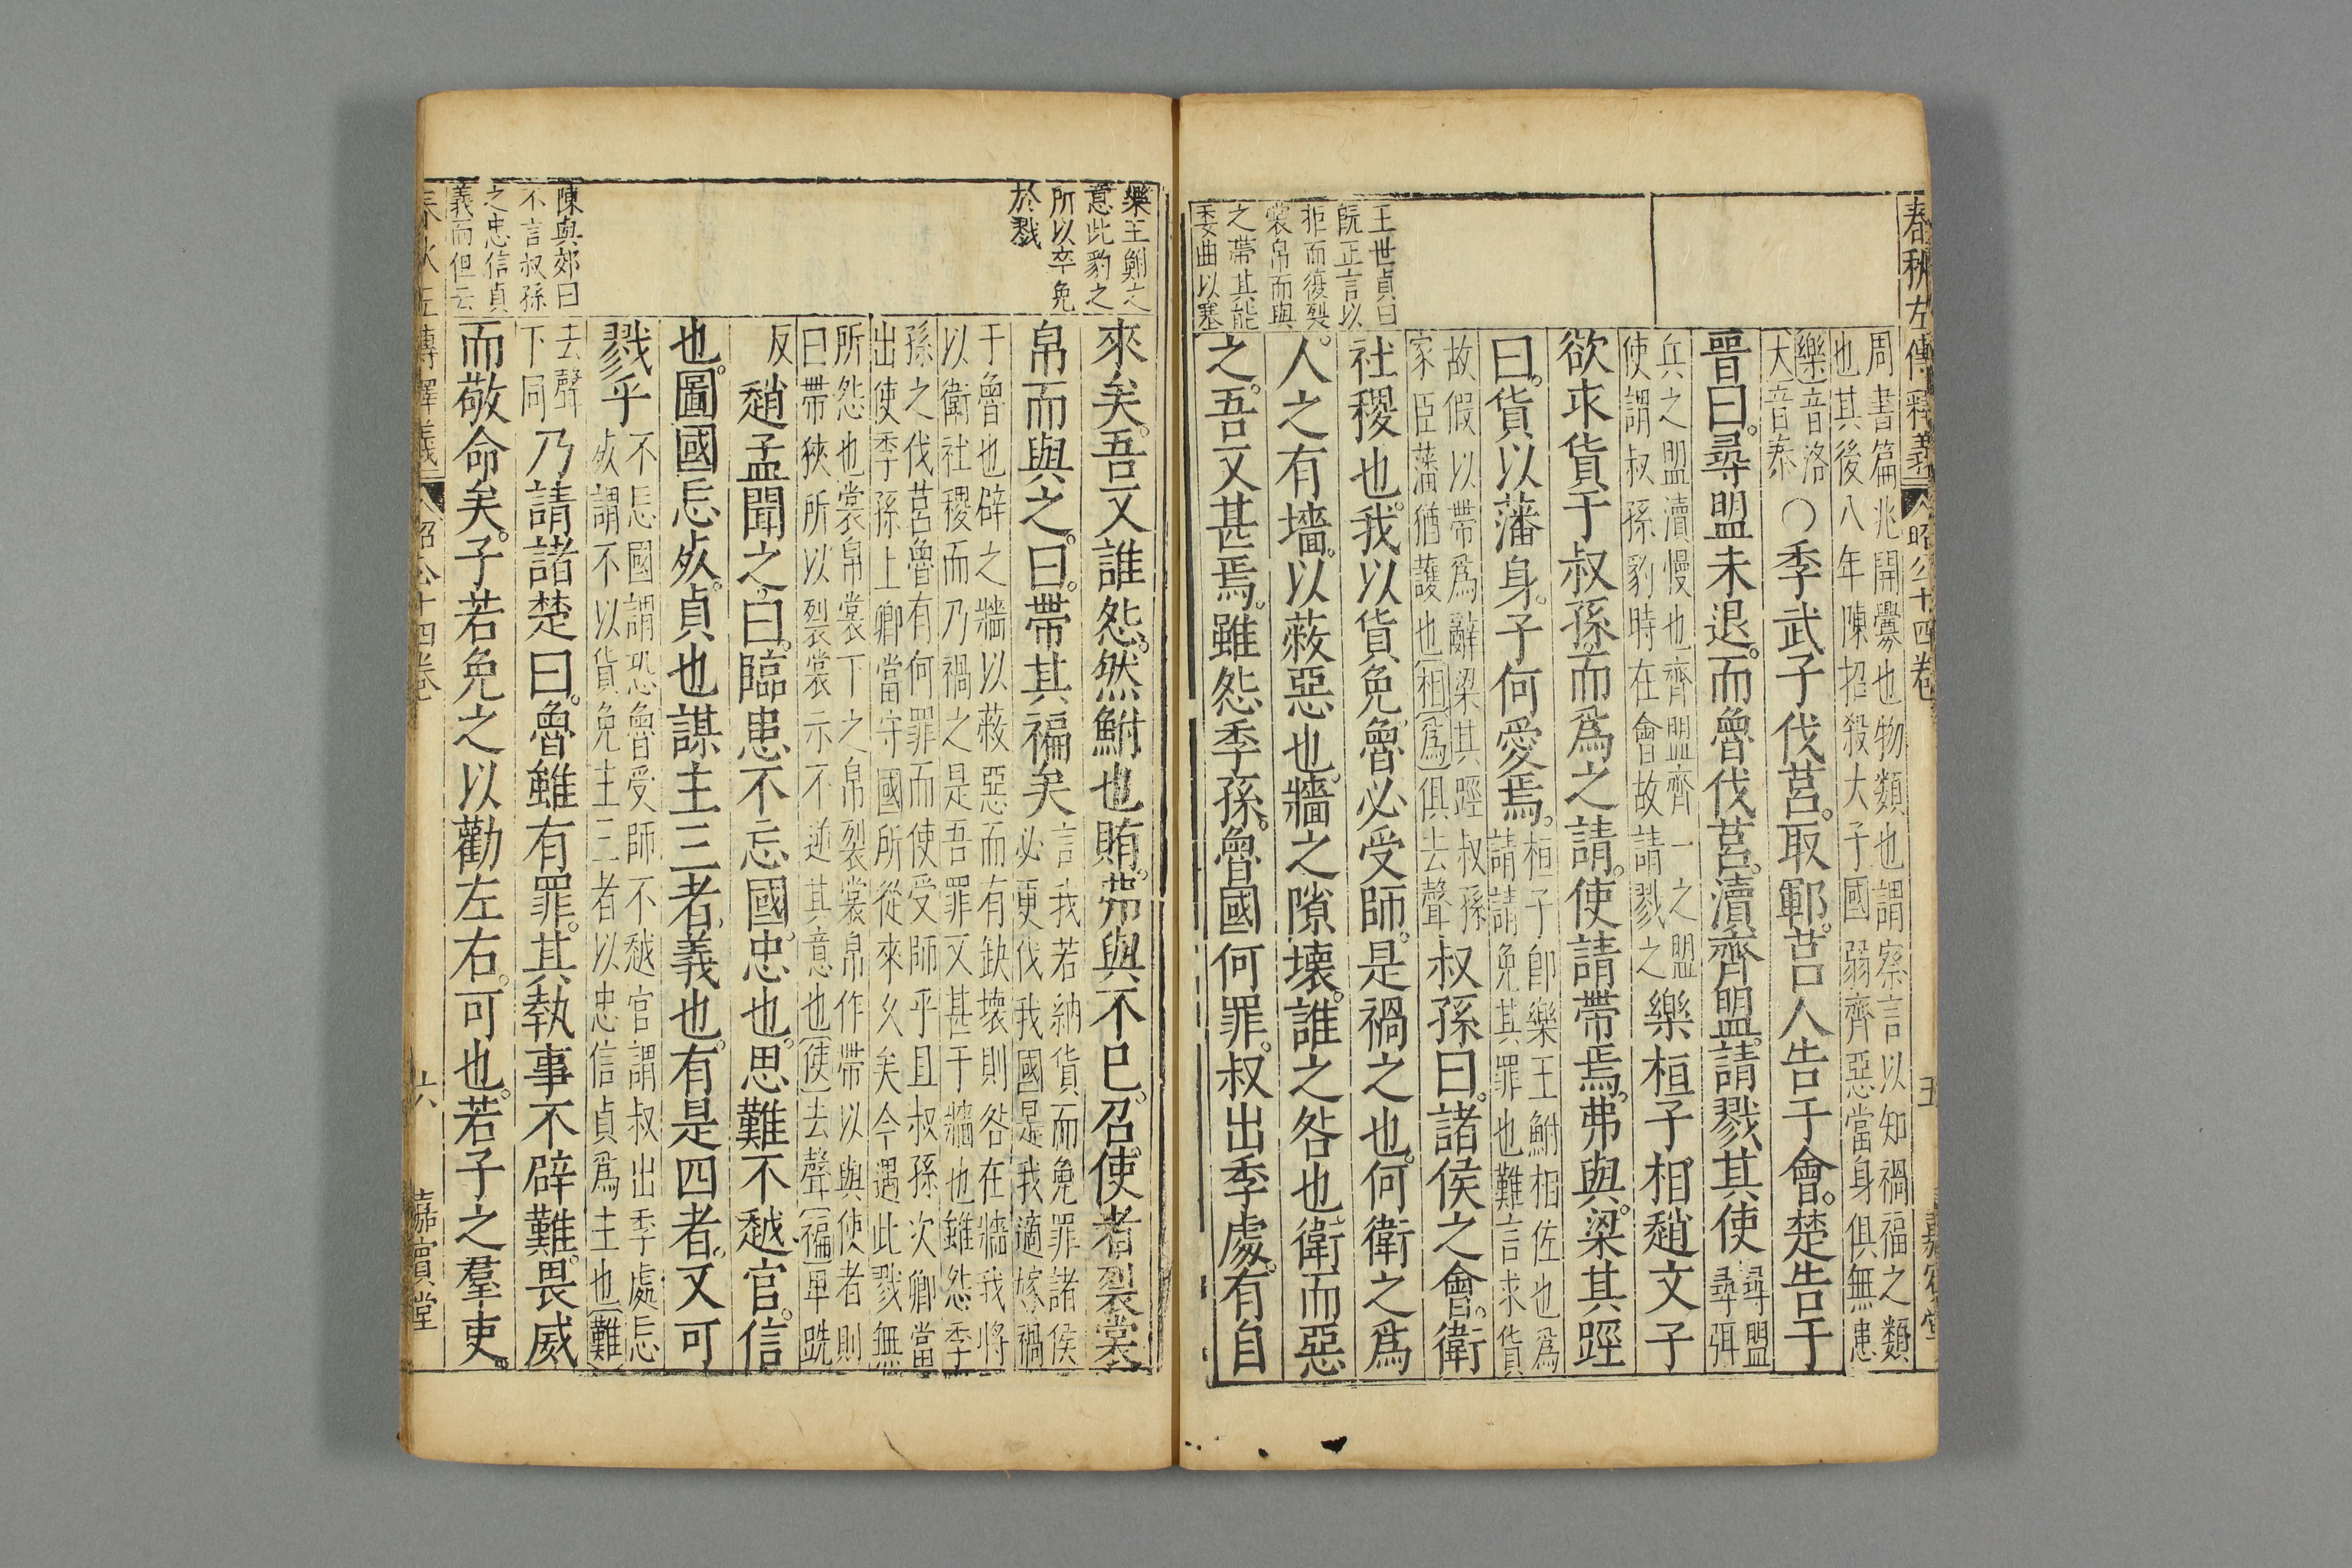 春秋左傳釋義
昭公十四卷
五
周書篇兆開釁也物類也謂察言以知禍福之類
也其後八年陳招殺大子國弱齊惡當身俱無患
樂音洛
大音泰
○季武子伐莒。取鄆。莒人告于會。楚告于
晉曰。尋盟未退。而魯伐莒。瀆齊盟。請戮其使
尋盟
尋弭
兵之盟瀆慢也齊盟齊一之盟
使謂叔孫豹時在會故請戮之
樂桓子相趙文子
欲求貨于叔孫。而爲之請。使請帶焉。弗與。梁其踁
曰。貨以藩身。子何愛焉。
桓子卽樂王鮒相佐也爲
請請免其罪也難言求貨
故假以帶爲辭梁其踁叔孫
家臣藩猶護也相爲俱去聲
叔孫曰。諸侯之會。衛
社稷也。我以貨免。魯必受師。是禍之也。何衛之爲
人。之有墻。以蔽惡也。牆之隙壞。誰之咎也。衛而惡
之。吾又甚焉。雖怨季孫。魯國何罪。叔出季處。有自
王世貞曰
旣正言以
拒而復裂
裳帛而與
之帶其能
委曲以塞
來矣。吾又誰怨。然鮒也賄。弗與不已。召使者裂裳
帛而與之。曰。帶其褊矣
言我若納貨而免罪諸侯
必更伐我國是我適嫁禍
于魯也辟之牆以蔽惡而有缺壞則咎在牆我將
以衛社稷而乃禍之是吾罪又甚于牆也雖怨季
孫之伐莒魯有何罪而使受師乎且叔孫次卿當
出使季孫上卿當守國所從來久矣今遇此戮無
所怨也裳帛裳下之帛裂裳帛作帶以與使者則
曰帶狹所以裂裳示不逆其意也使去聲褊畢跣
反
趙孟聞之。曰。臨患不忘國。忠也。思難不越官。信
也。圖國忘死。貞也謀主三者。義也。有是四者。又可
戮乎
不忘國謂恐魯受師不越官謂叔出季處忘
死謂不以貨免主三者以忠信貞爲主也難
去聲
下同
乃請諸楚曰。魯雖有罪。其執事不辟難。畏威
而敬命矣。子若免之以勸左右。可也。若子之羣吏。
樂王鮒之
意此豹之
所以卒免
於戮
陳與郊曰
不言叔孫
之忠信貞
義而但云
六
嘉賓堂